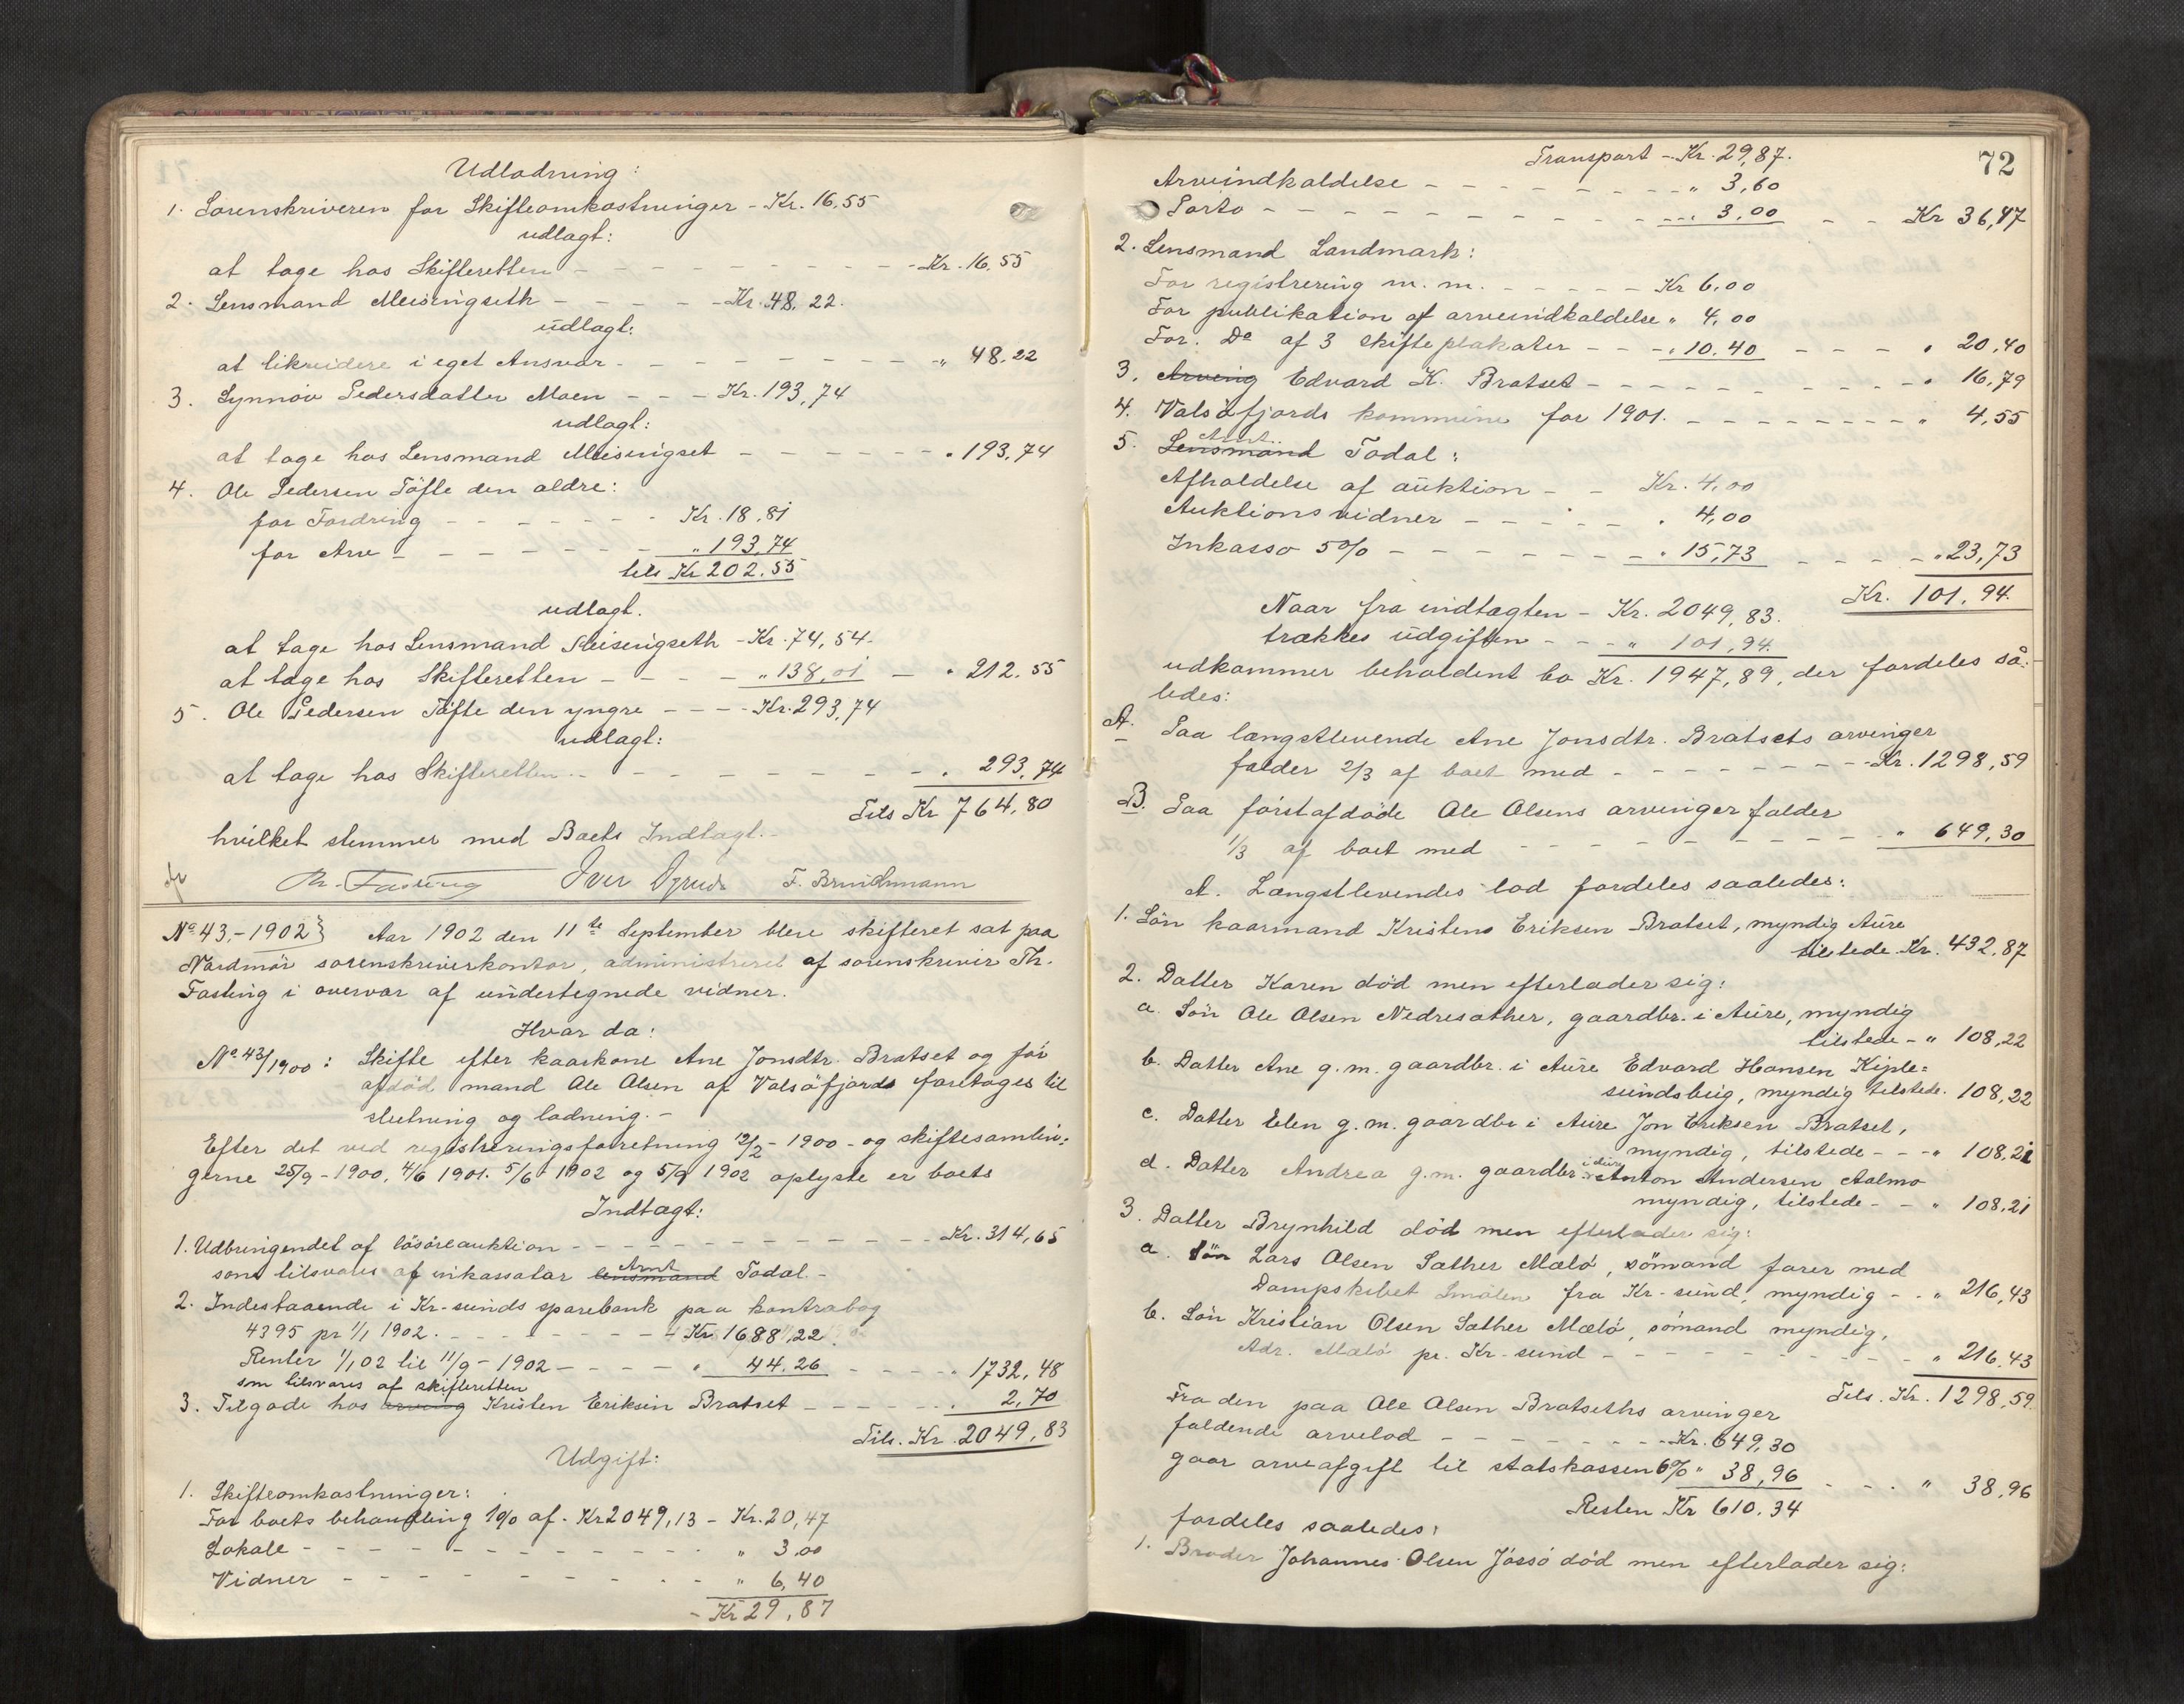 Udlodning:
1. Sorenskriveren for Skifteomkostninger - Kr. 16,55
udlagt:
at tage hos Skifteretten - - - - - - - - - - Kr. 16,55
2. Lensmand Meisingseth - - - - - Kr. 48,22.
udlagt:
at likvidere i eget Ansvar - - - - - - - - " 48,22
3. Synnöv Pedersdatter Moen - - - Kr. 193,74
udlagt:
at tage hos Lensmand Meisingset - - - - - - " 193,74
4. Ole Pedersen Töfte den ældre:
for Fordring - - - - - - Kr. 18,81
for Arv - - - - - - - " 193,74
tils Kr 202.55
udlagt.
at tage hos Lensmand Meisingseth - Kr. 74,54.
at tage hos Skifteretten - - - - " 138,01 - " 212.55
5. Ole Pedersen Töfte den yngre - - - Kr. 293,74
udlagt:
at tage hos Skifteretten - - - - - - - - - " 293,74
Tils Kr 764,80
hvilket stemmer med Boets Indtægt. -
Th. Fasting Iver F. Bruchmann
No 43.-1902} Aar 1902 den 11te September blev skifteret sat paa
Nordmör sorenskriverkontor, administreret af sorenskriver Th.
Fasting i overvær af undertegnede vidner.
Hvor da:
No 43/1900: Skifte efter kaarkone Ane Jonsdtr. Bratset og för
afdöd mand Ole Olsen af Valsöfjords foretages til
slutning og lodning. -
Efter det ved registreringsforretning 12/2 - 1900 - og skiftesamlin:
gerne 25/9 - 1900, 4/6 1901. 5/6 1902 og 5/9 1902 oplyste er boets
Indtægt:
1. Udbringendet af lösöreauktion - - - - - - - - - Kr. 314,65
Arnt
som tilsvares af inkassator lensmand Todal. -
2. Indestaaende i Kr-sunds sparebank paa kontrabog
4395 pr 1/1 1902. - - - - - - - - Kr 1688,22
Renter 1/1 02 til 11/9 - 1902 - - - - " 44.26 - - - - " 1732,48
som tilsvares af skifteretten
3. Tilgode hos arving Kristen Eriksen Bratset - - - - - " 2,70
Tils. Kr. 2049,83
Udgift:
1. Skifteomkostninger:
For boets behandling 1% af. Kr 2049,13 - Kr. 20,47
Lokale - - - - - - - - - - - " 3,00
Vidner - - - - - - - - - - " 6,40
- Kr 29,87
72
Transport - Kr. 29,87.
Arveindkaldelse - - - - - - - - - " 3,60
Porto - - - - - - - - - - - " 3,00 - - Kr 36,47
2. Lensmand Landmark:
For registrering m. m. - - - - - Kr 6,00
For publikation af arveindkaldelse " 4,00
For. Do af 3 skifteplakater - - - " 10.40 - - - " 20,40
3. Arving Edvard K. Bratset - - - - - - - - - - " 16,79
4. Valsöfjords kommune for 1901. - - - - - - - - " 4,55
Arnt
5. Lensmand Todal:
Afholdelse af auktion - - Kr. 4,00
Auktionsvidner - - - - - " 4,00
Inkasso 5% - - - - - - - " 15,73 - - - - " 23,73
Kr. 101,94.
Naar fra indtægten - Kr. 2049,83.
trækkes udgiften - - - " 101,94.
udkommer beholdent bo Kr. 1947,89, der fordeles så:
ledes:
A. Paa længstlevende Ane Jonsdtr. Bratsets arvinger
falder 2/3 af boet med - - - - - - - - - Kr. 1298,59
B. Paa förstafdöde Ole Olsens arvinger falder
1/3 af boet med - - - - - - - - - - " 649,30
A. Længstlevendes lod fordeles saaledes:
1. Sön kaarmand Kristens Eriksen Bratset, myndig Aure
tilstede Kr. 432,87
2. Datter Karen död men efterlader sig:
a. Sön Ole Olsen Nedresæther, gaardbr. i Aure, myndig
tilstede - " 108,22
b. Datter Ane g. m. gaardbr. i Aure Edvard Hansen Kiple:
sundsbug, myndig tilstede. 108,22
c. Datter Elen g. m. gaardbr i Aure Jon Eriksen Bratset,
myndig, tilstede - - - " 108,21
d. Datter Andrea g. m. gaardbr. i Aure Anton Andersen Aalmo
myndig, tilstede - - " 108,21
3. Datter Brynhild död men efterlader sig:
a. Sön Lars Olsen Sæther Mælö, sömand farer med
Dampskibet Smölen fra Kr-sund, myndig - - " 216,43
b. Sön Kristian Olsen Sæther Mælö, sömand myndig,
Adr. Mælö pr. Kr-sund - - - - - - - - - - " 216.43
Tils. Kr. 1298,59.
Fra den paa Ole Olsen Bratseths arvinger
faldende arvelod - - - - - - - Kr. 649,30
gaar arveafgift til statskassen 6% " 38,96 - - - " 38,96
Resten Kr 610.34
fordeles saaledes:
1. Broder Johannes Olsen Jössö död men efterlader sig: